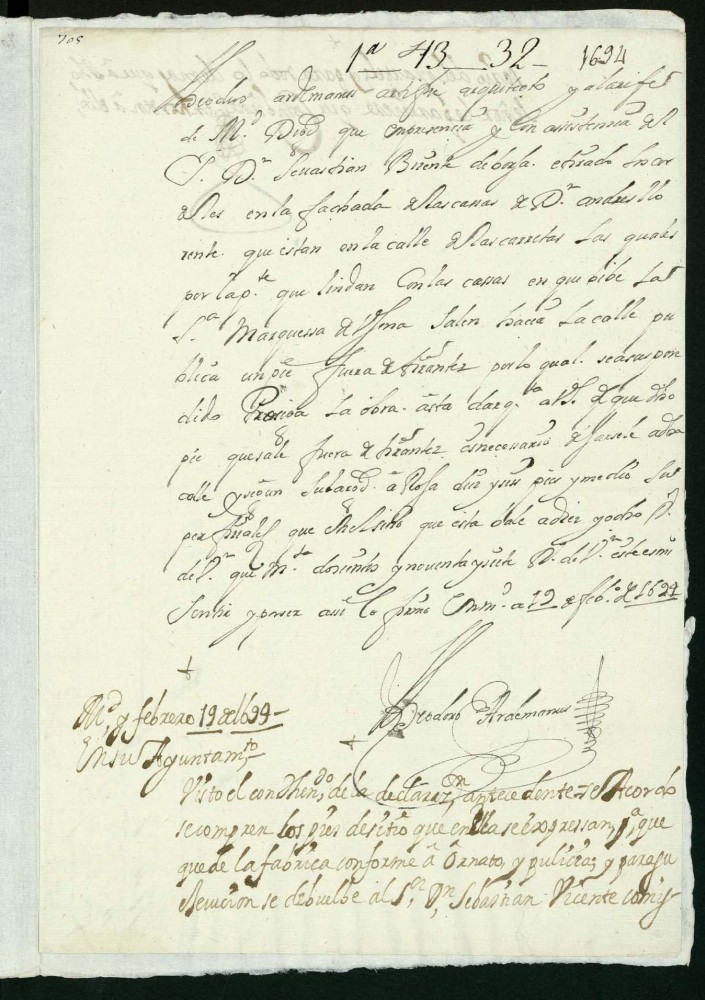 705
1ª 43 32 1694
Theodoro ardemanus arquitecto y alarife
de M.d Dize que en presencia y con assistencia del
S.r D.n Sevastian Bizente de borja. etirado los cor
deles en la fachada de las cassas de D.n andres llo
rente. que estan en la calle de las carretas las quales
por la p.te que lindan con las cassas en que vibe la
S.ra Marquessa de Salen hacia la calle pu
blica un pie fuera de tirantez por lo qual se a suspen
dido Prosiga la obra. asta dar q.ta a V.S. de que dho
pie que sale fuera de tirantez es necesario dejarsele a dha
calle y segun su largo a diez y seis pies y medio su
perfiziales que el sitio que esta bale a diez y ocho R.s
de V.n que m.ta docientos y noventa y siete R.s de V.n este es mi
sentir y parezer assi lo firmo en M.d a 19 de feb.o de 1694
Theodoro Ardemanus
M.d y febrero 19 de 1694
En su Ayuntam.to
Visto el conthen.do de la declaraz.on antecedente = se Acordo
se compren los pies de sitio que en ella se expressan, p.a que
quede la fabrica conforme â Ornato, y pulicia; y para su
execucion se debuelbe al S.or D.n Sebastian Vicente comis